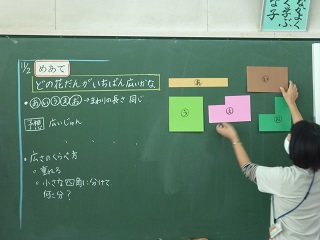 なかよく
学ぶ
な子
11/2
めあて
どの花だんがいちばん広いかな
あいうえお→まわりの長さ 同じ
予想 広いじゅん
・広さのくらべ方
○重ねる
○小さな四角に分けて
何こ分?
あ
う